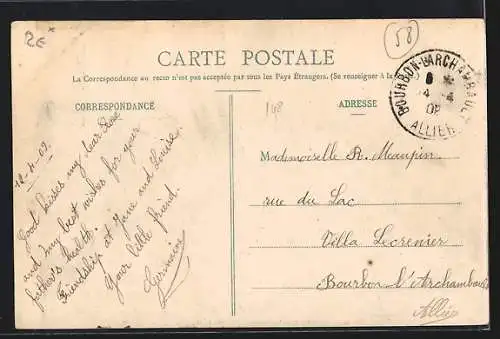 2€
58
CARTE POSTALE
La Correspondance au recto n'est pas acceptée par tous les Pays Étrangers. (Se renseigner à la
CORRESPONDANCE
ADRESSE
148
BOURBON-L'ARCHAMBAULT
6
4 4
ALLIER
Good kisses my dear Rose
and my best wishes for your
father's health.
Friendship at Jane and Louise.
Your little friend.
Germaine
Mademoiselle R. Meaupin
rue du Lac
Villa Lecrenier
Bourbon l'Archambault
Allier